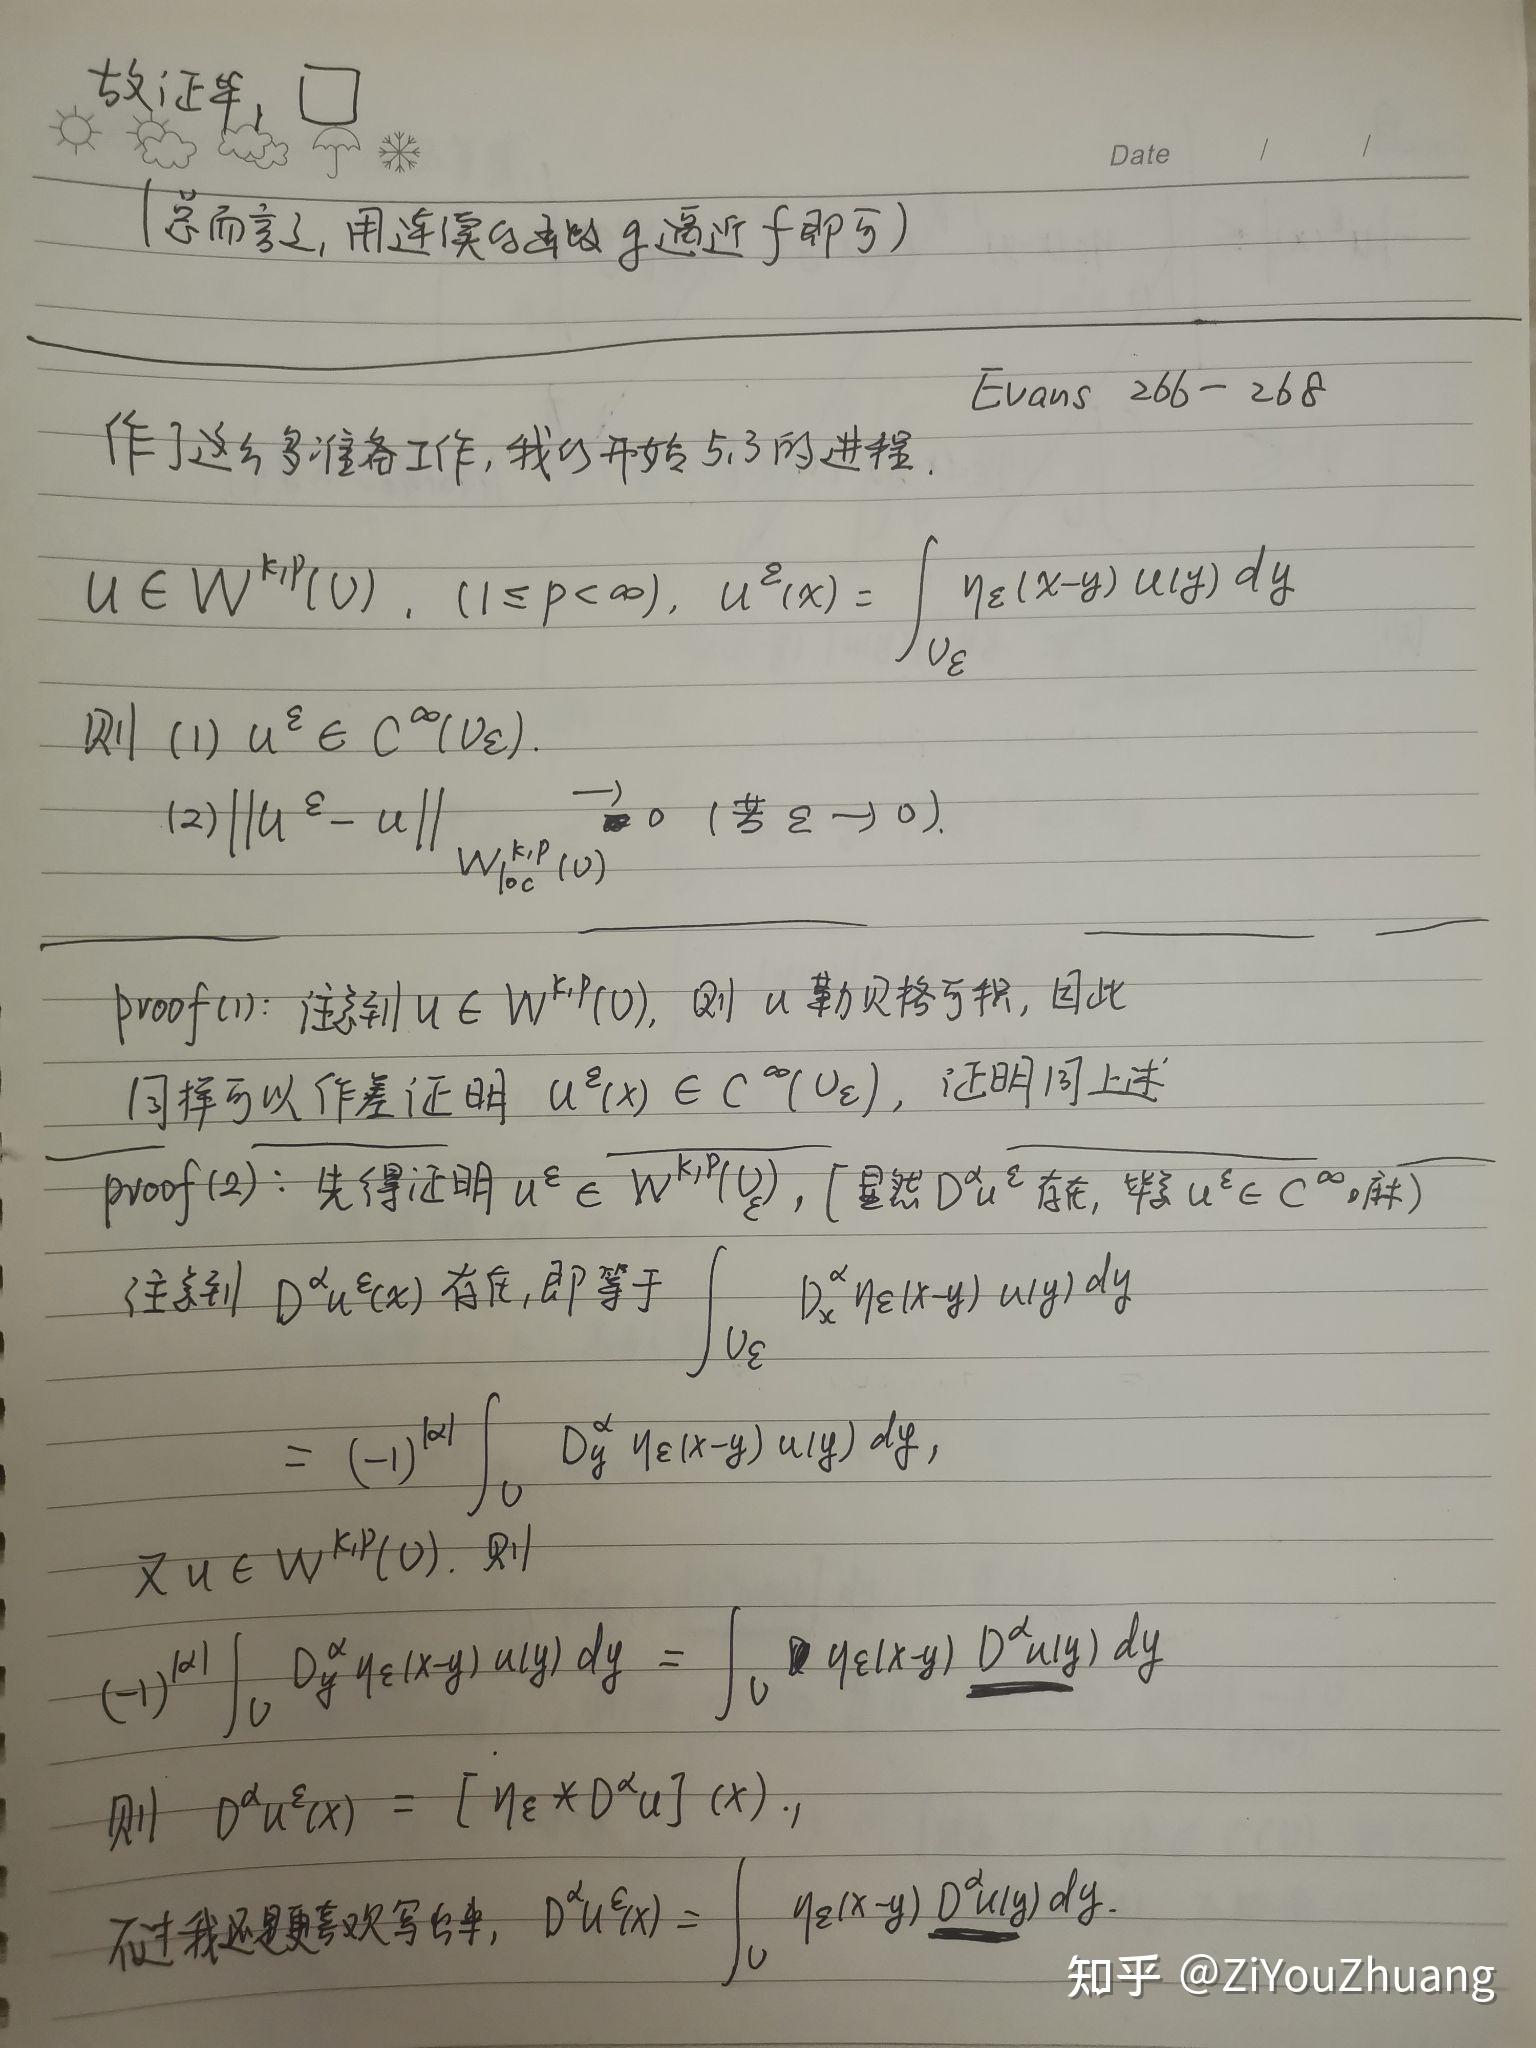 故证毕, □
Date / /
(总而言之, 用连续函数 g 逼近 f 即可)
Evans 266-268
作了这么多准备工作, 我们开始 5.3 的进程.
U ∈ W^{k,p}(U). (1≤p<∞), u^ε(x) = ∫_{U_ε} η_ε(x-y) u(y) dy
则 (1) u^ε ∈ C^∞(U_ε).
(2) ||u^ε - u||_{W^{k,p}_{loc}(U)} → 0 (若 ε → 0).
proof(1): 注意到 u ∈ W^{k,p}(U), 则 u 勒贝格可积, 因此
同样可以作差证明 u^ε(x) ∈ C^∞(U_ε), 证明同上述
proof(2): 先得证明 u^ε ∈ W^{k,p}(U_ε), [显然 D^α u^ε 存在, 毕竟 u^ε ∈ C^∞ 嘛)
注意到 D^α u^ε(x) 存在, 即等于 ∫_{U_ε} D_x^α η_ε(x-y) u(y) dy
= (-1)^{|α|} ∫_U D_y^α η_ε(x-y) u(y) dy,
又 u ∈ W^{k,p}(U). 则
(-1)^{|α|} ∫_U D_y^α η_ε(x-y) u(y) dy = ∫_U η_ε(x-y) D^α u(y) dy
则 D^α u^ε(x) = [η_ε * D^α u] (x).,
不过我还是更喜欢写出来, D^α u^ε(x) = ∫_U η_ε(x-y) D^α u(y) dy.
知乎 @ZiYouZhuang